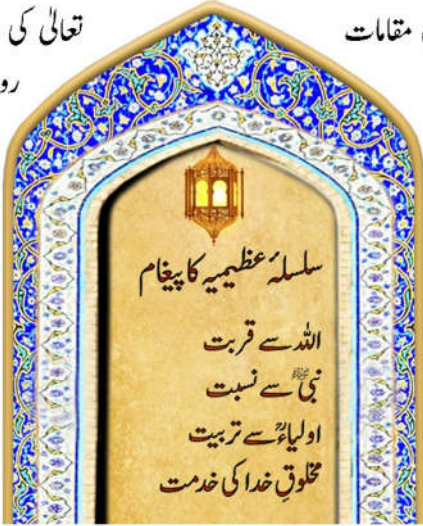 مقامات
تعالیٰ کی
سلسلۂ عظیمیہ کا پیغام
اللہ سے قربت
نبیﷺ سے نسبت
اولیاءؒ سے تربیت
مخلوقِ خدا کی خدمت